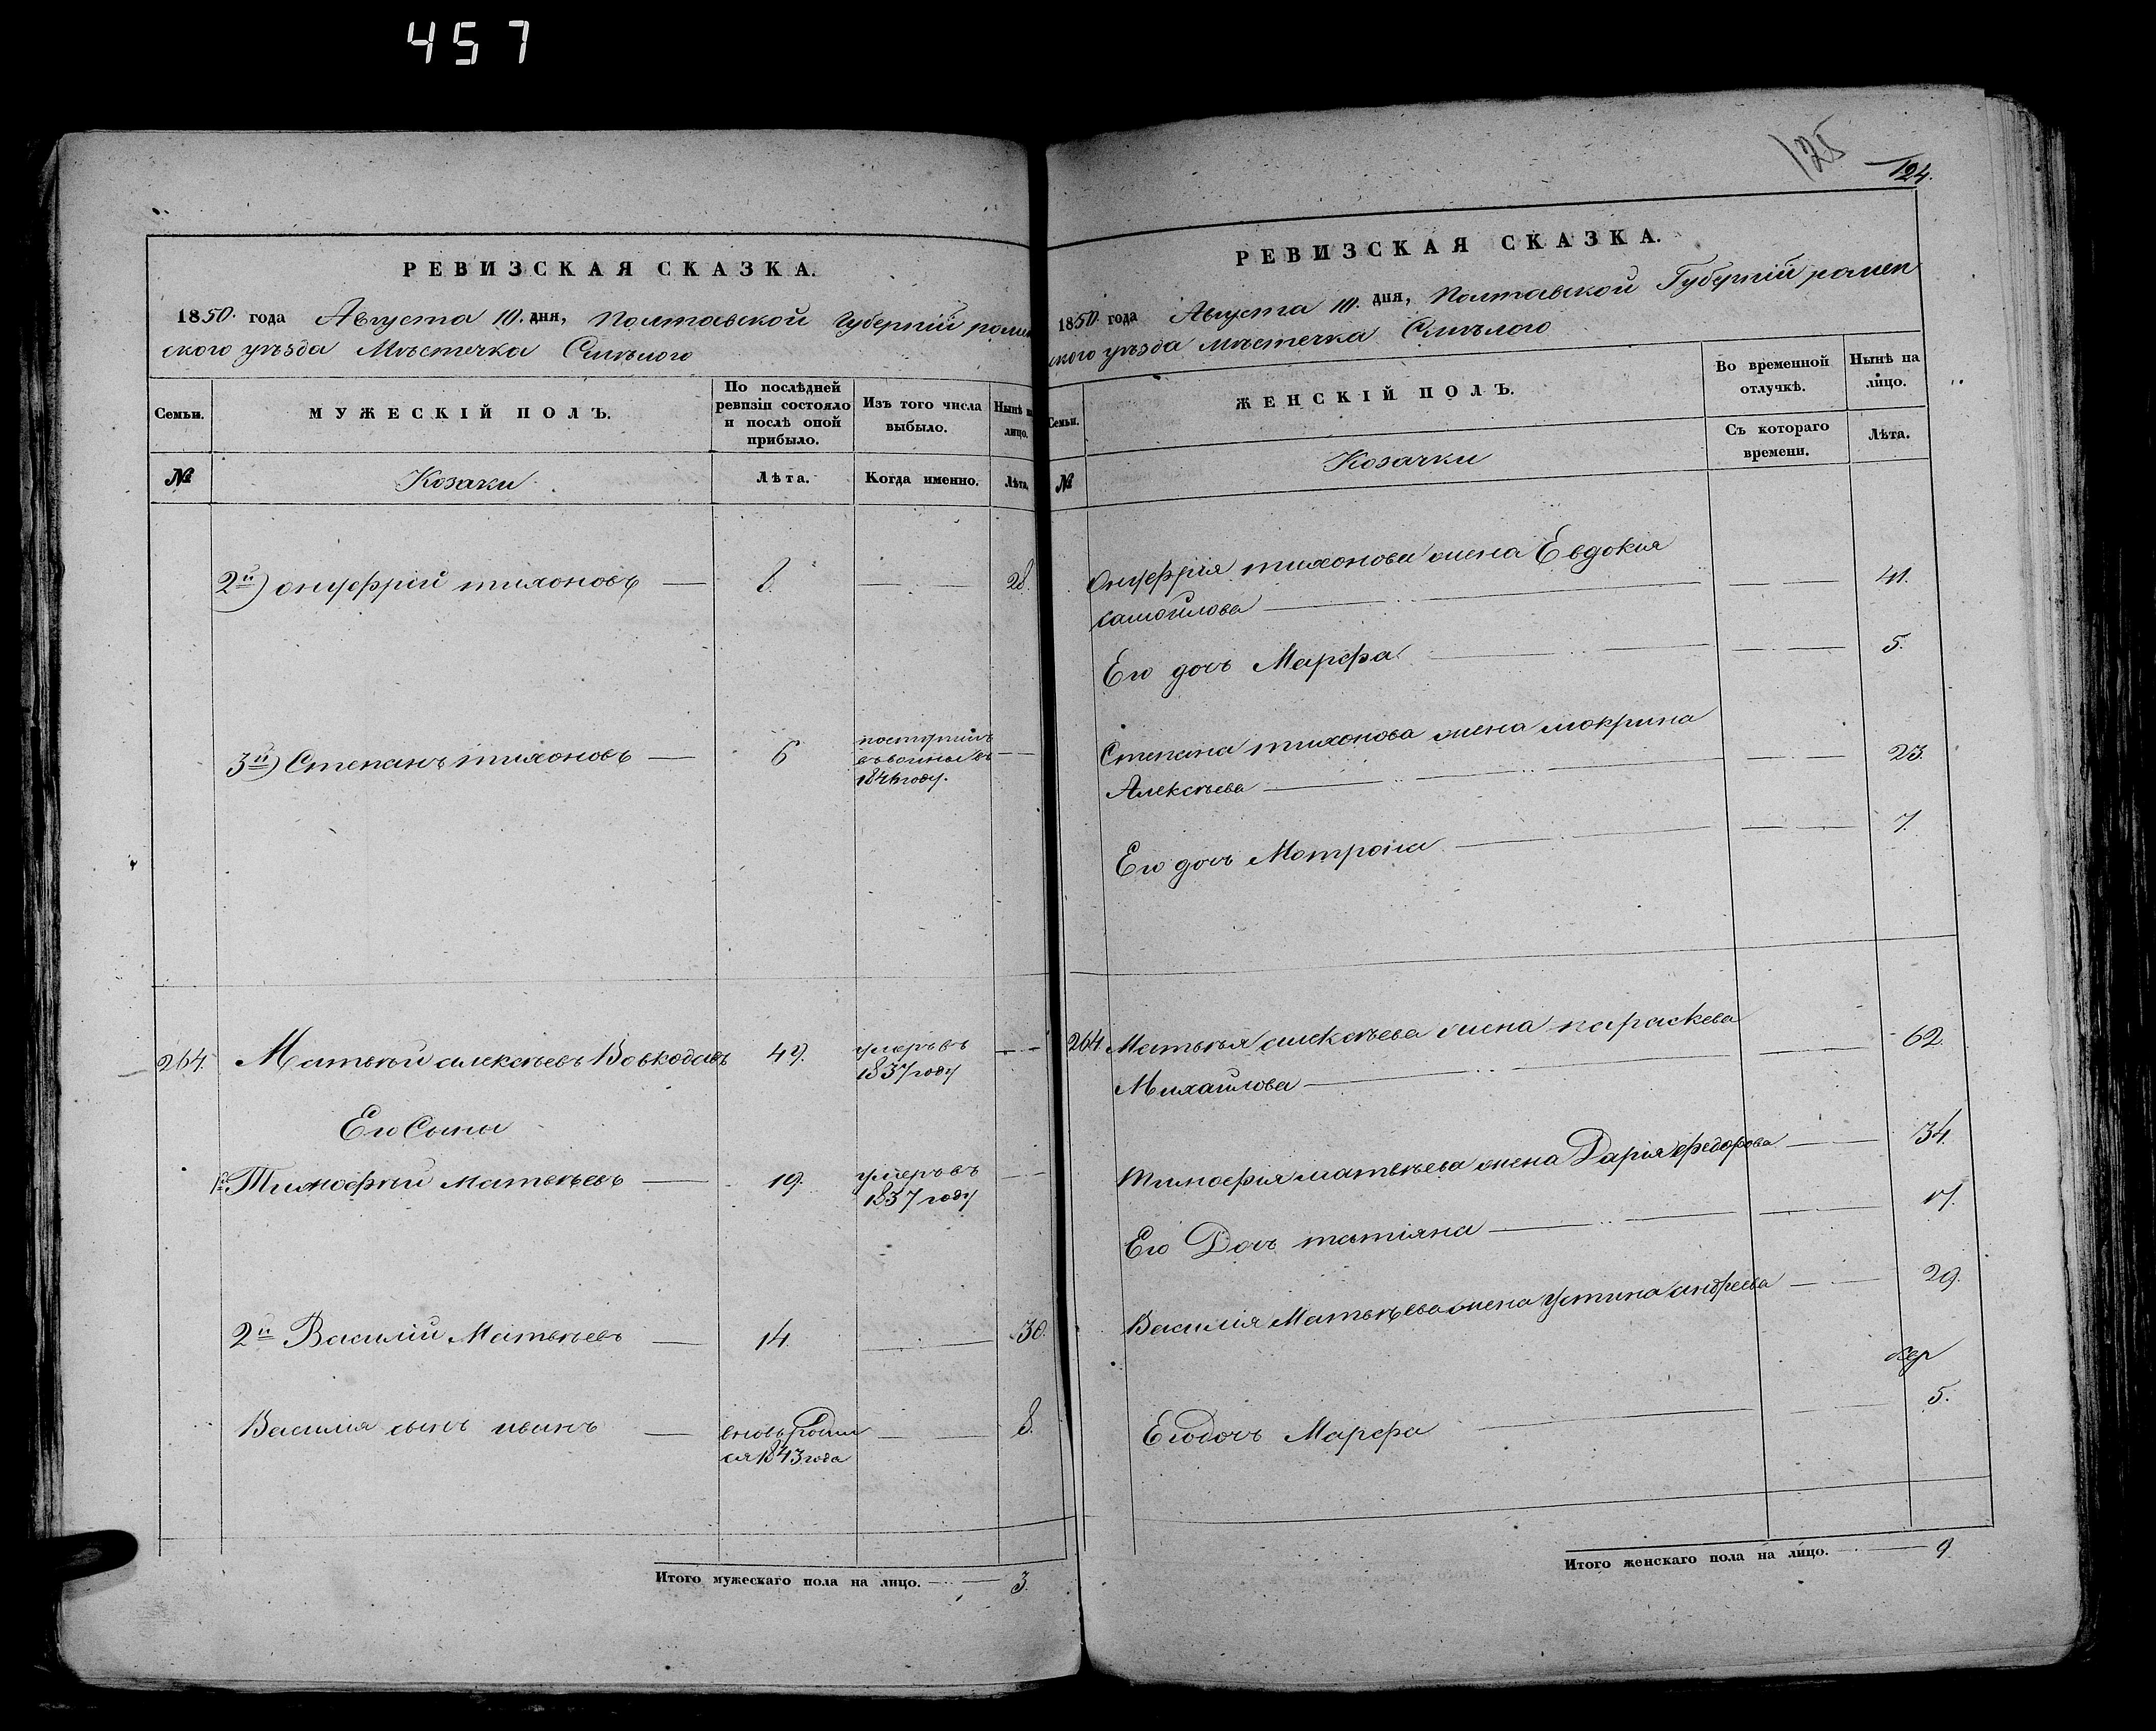 457
РЕВИЗСКАЯ СКАЗКА.
1850. года Августа 10. дня, Полтавской Губерніи ромен
ского уѣзда Мѣстечка Смѣлого
Семьи.
МУЖЕСКІЙ ПОЛЪ.
По послѣдней ревизіи состояло и послѣ оной прибыло.
Изъ того числа выбыло.
Нынѣ на лицо.
№
Козаки
Лѣта.
Когда именно.
Лѣта.
2й) онуфрій тихоновъ — 8. — 28.
3й) Степанъ тихоновъ — 6
поступилъ
въ
году.
264. Матвѣй алексѣевъ Вовкодавъ 49. умеръ въ
1837 году
Его Сыны
1й Тимофѣй Матвѣевъ — 19. умеръ въ
1837 году
2й Василій Матвѣевъ — 14. — 30.
Василія сынъ иванъ — вновь родил — 8.
ся 1843 года
Итого мужескаго пола на лицо. — 3.
125
124.
РЕВИЗСКАЯ СКАЗКА.
1850 года Августа 10. дня, Полтавской Губерніи ромен
ского уѣзда мѣстечка Смѣлого
Семьи.
ЖЕНСКІЙ ПОЛЪ.
Во временной отлучкѣ.
Нынѣ на лицо.
№
Козачки
Съ котораго времени.
Лѣта.
Онуфрія тихонова жена Евдокія
самойлова — 41.
Его дочь Марфа — 5.
Степана тихонова жена мокрина
Алексѣева — 23.
Его дочь Матрона — 7.
264. Матвѣя алексѣева жена параскева
Михайлова — 62.
Тимофія матвѣева жена Дарія федорова — 34.
Его Дочь татіяна — 17.
Василія Матвѣева жена Устина андреева — 29.
Его дочь Марфа — 5.
Итого женскаго пола на лицо. — 9